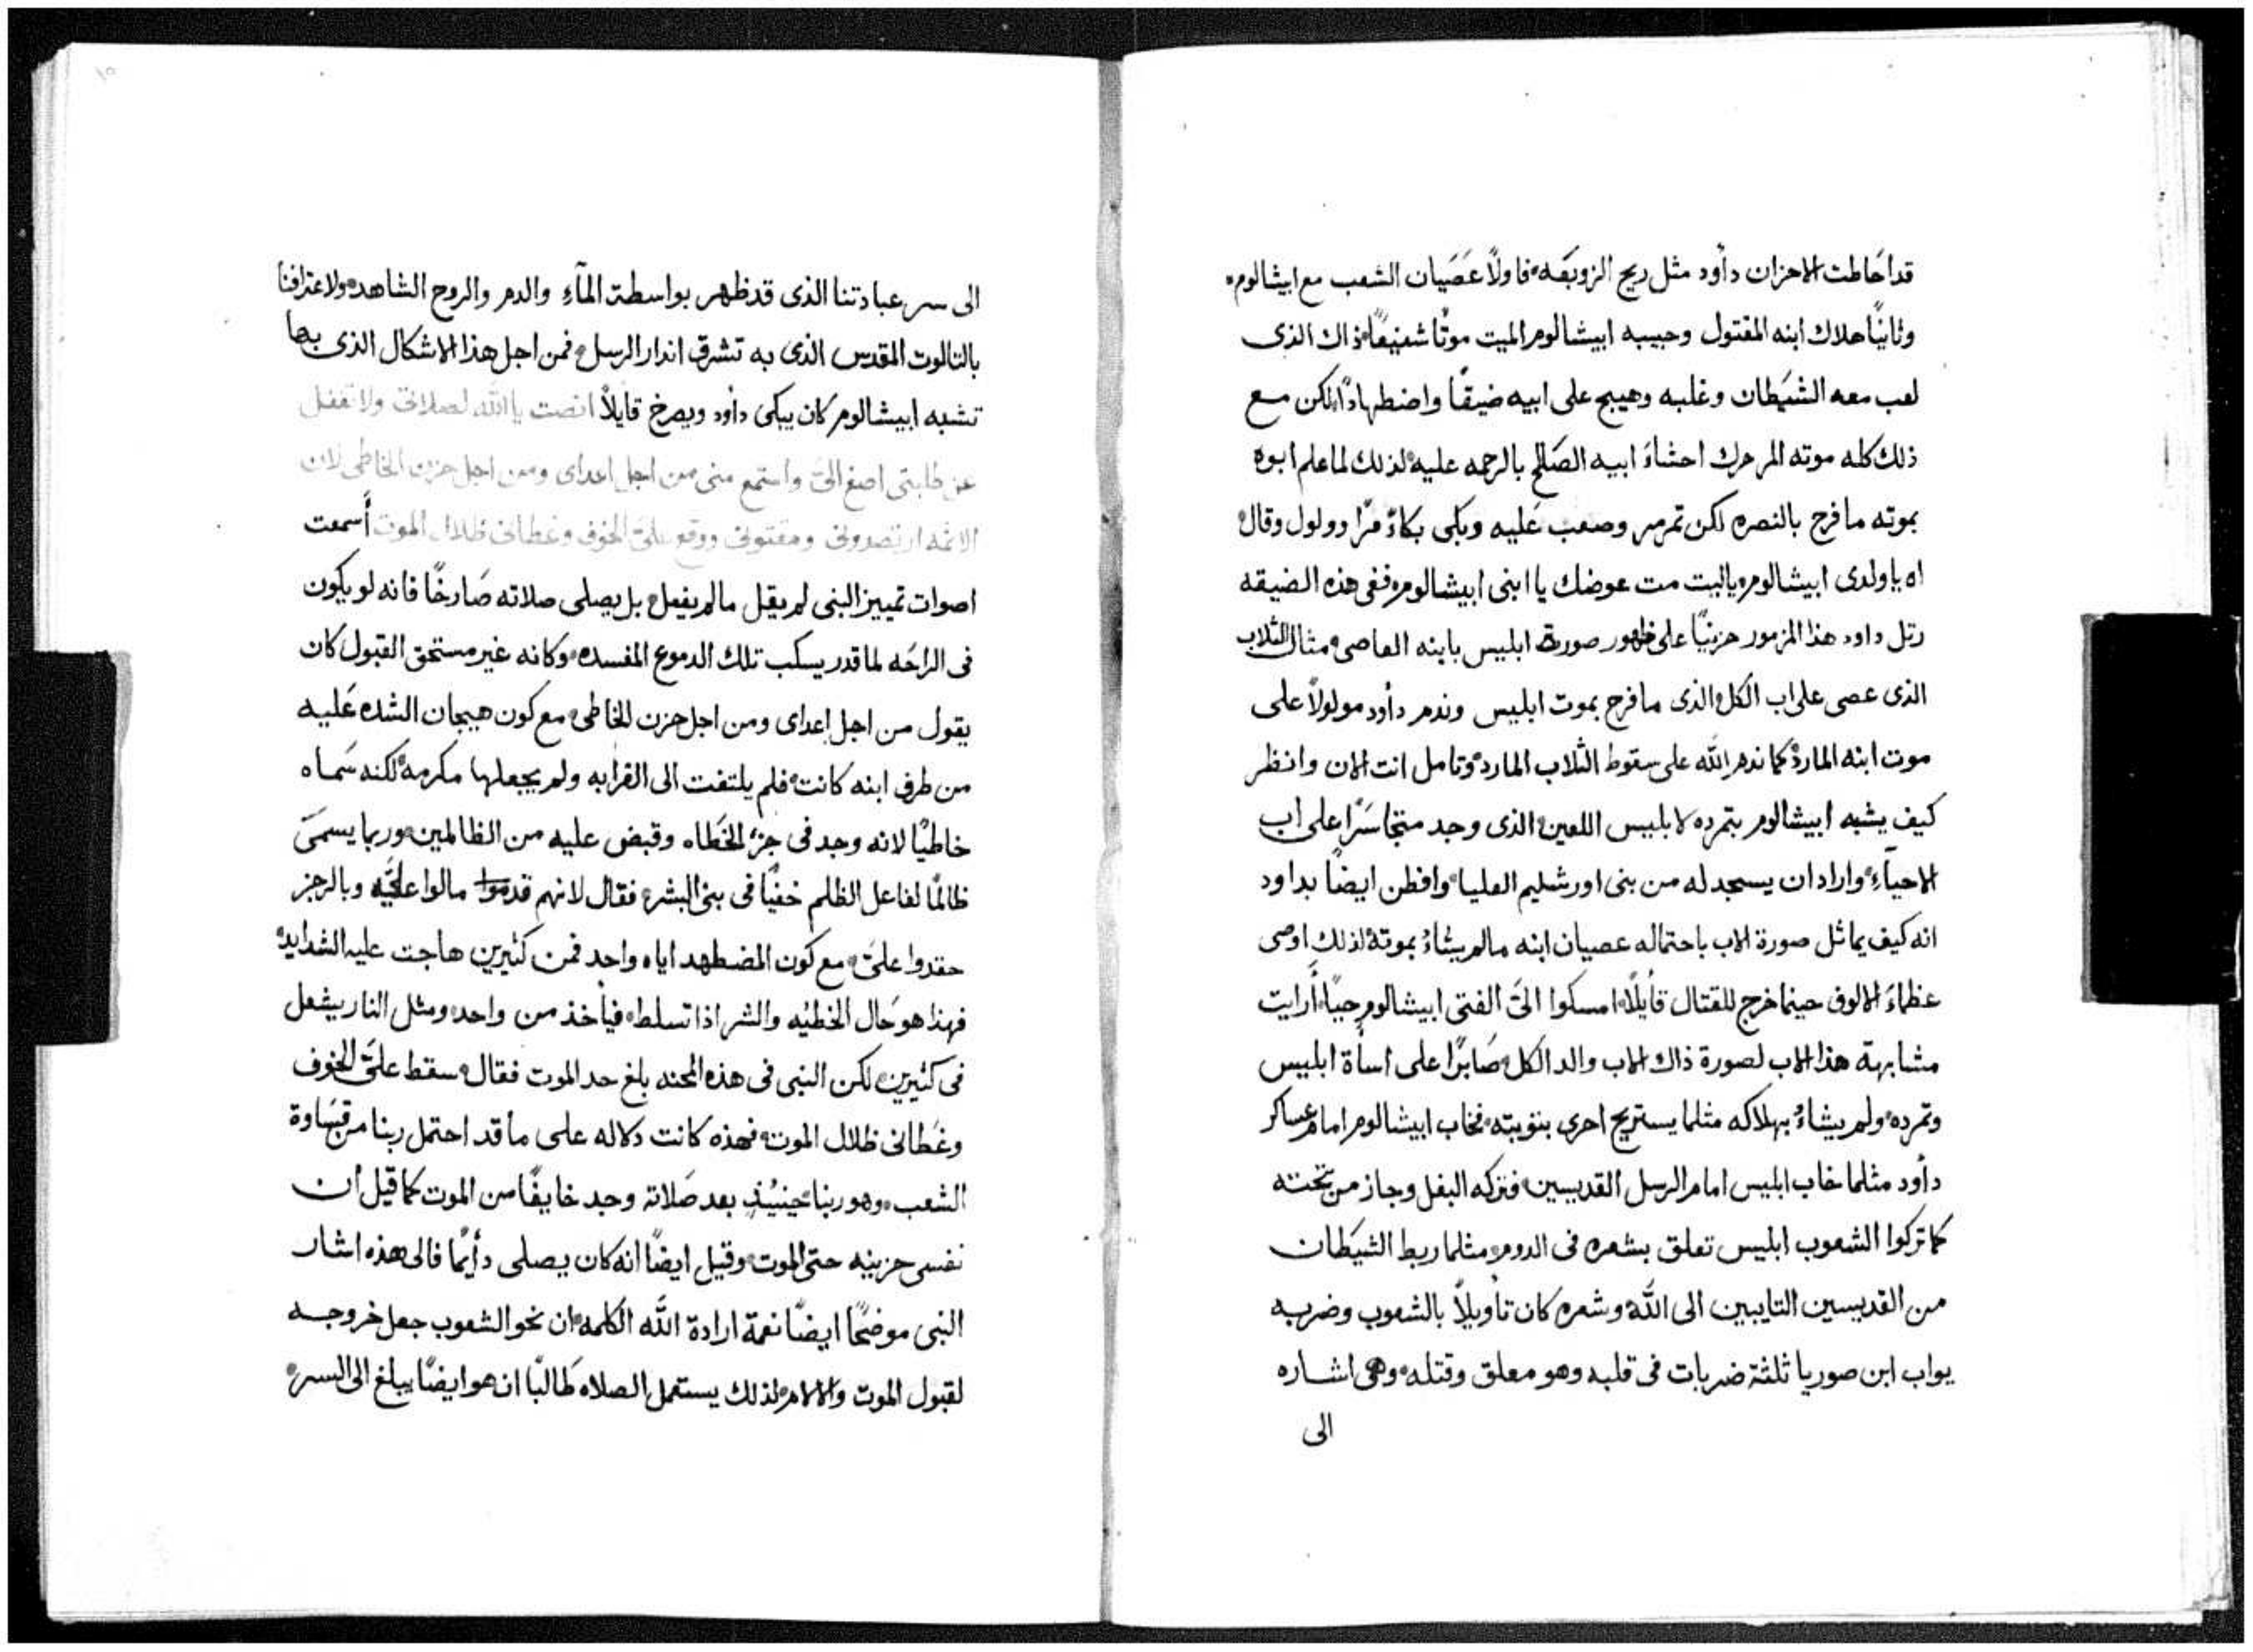 قد احَاطت الاحزان دأود مثل ريح الزوبَعَه، فاولًا عَصَيان الشعب مع ابيشالوم،
وثانيًا هلاك ابنه المقتول وحبيبه ابيشالوم الميت موتًا شنيعًا، ذاك الذى
لعب معه الشيَطان وغلبه وهيج على ابيه ضيقًا واضطهادًا، لكن مع
ذلك كله موته المر حرك احشاءَ ابيه الصَالح بالرحمه عليه، لذلك لما علم ابوه
بموته ما فرح بالنصره لكن تمرمر وصعب عَليه وبكى بكاءً مرًا وولول وقال،
اه يا ولدى ابيشالوم، ياليت مت عوضك يا ابنى ابيشالوم، ففى هذه الضيقه
رتل داود هذا المزمور حزينًا على ظهور صورة ابليس بابنه العاصى، مثال الثلاب
الذى عصى على اب الكل، الذى ما فرح بموت ابليس وندم دأود مولولًا على
موت ابنه المارد، كما ندم الله على سقوط الثلاب المارد، وتامل انت الان وانظر
كيف يشبه ابيشالوم بتمرده لابليس اللعين، الذى وجد متجَاسَرًا على اب
الاحيآءِ، واراد ان يسجد له من بنى اورشليم العليا، وافطن ايضًا بداود
انه كيف يماثل صورة الاب باحتماله عصيان ابنه مالم يشاءُ بموته، لذلك اوصى
عظماءَ الالوف حينما خرج للقتال قأيلًا، امسكوا الىَّ الفتى ابيشالوم حيًا، أرايت
مشابهة هذا الاب لصورة ذاك الاب والد الكل، صَابرًا على اسأة ابليس
وتمرده، ولم يشاءُ بهلاكه مثلما يستريح احرى بتوبته، فخاب ابيشالوم امام عساكر
دأود مثلما خاب ابليس امام الرسل القديسين، فتركه البغل وجاز من تحته
كما تركوا الشعوب ابليس تعلق بشعره فى الدوم، مثلما ربط الشيَطان
من القديسين التايبين الى الله، وشعره كان تأويلًا بالشعوب وضربه
يواب ابن صوريا ثلثة ضربات فى قلبه وهو معلق وقتله، وهى اشاره
الى
الى سر عبادتنا الذى قد ظهر بواسطة المآءِ والدم والروح الشاهد، ولاعترافنا
بالثالوث المقدس الذى به تشرق انذار الرسل، فمن اجل هذا الاشكال الذى بها
تشبه ابيشالوم كان يبكى دأود ويصرخ قايلًا انصت يا الله لصلاتى ولا تغفل
عن طلبتى اصغ الىَّ واستمع منى من اجل اعداى ومن اجل حزن الخاطى لان
الاثمه ارتصدونى ومقتونى ووقع علىَّ الخوف وغطانى ظلال الموت أَسمعت
اصوات تمييز النبى لم يقل مالم يفعل، بل يصلى صلاته صَارخًا فانه لو يكون
فى الراحَه لما قدر يسكب تلك الدموع المفسده، وكانه غير مستحق القبول كان
يقول من اجل اعداى ومن اجل حزن الخاطى، مع كون هيجان الشده عَليه
من طرف ابنه كانت، فلم يلتفت الى القرابه ولم يجعلها مكرمه، لكنه سَماه
خاطيًا لانه وجد فى جزءِ الخَطاه وقبض عليه من الظالمين، وربما يسمىَ
ظالمًا لفاعل الظلم خفيًا فى بنى البشر، فقال لانهم قد موا مالوا علىَّ وبالرجز
حقدوا علىَّ، مع كون المضطهد اياه واحد فمن كثيرين هاجت عليه الشدايد،
فهذا هو حَال الخطيُه والشر اذا تسلط، فيأخذ من واحد، ومثل النار يشعل
فى كثيرين، لكن النبى فى هذه المحنه بلغ حد الموت فقال، سقط علىَّ الخوف
وغَطانى ظلال الموت، فهذه كانت دلاله على ما قد احتمل ربنا من قسَاوة
الشعب، وهو ربنا، حينيُذٍ بعد صَلاته وجد خايفًا من الموت كما قيل أن
نفسى حزينه حتى الموت، وقيل ايضًا انه كان يصلى دأيمًا فالى هذه اشار
النبى موضحًا ايضًا نعمة ارادة الله الكلمه، ان نحو الشعوب جعل خروجه
لقبول الموت والالام، لذلك يستعمل الصلاه طَالبًا ان هو ايضًا يبلغ الى السر،